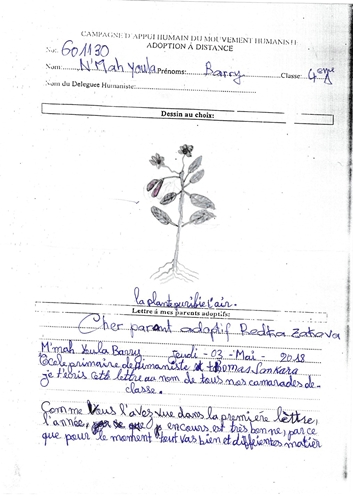 CAMPAGNE D'APPUI HUMAIN DU MOUVEMENT HUMANISTE
ADOPTION À DISTANCE
No: 601130
Nom: N'Mah Youla Prénoms: Barry Classe: 4eme A
Nom du Deleguee Humaniste:
Dessin au choix:
la plante purifie l'air.
Lettre à mes parents adoptifs:
Cher parent adoptif Redka Zatova
M'mah Youla Barry Jeudi - 03 - Mai - 2018
Ecole primaire Thomas Sankara
je t'écris cette lettre au nom de tous mes camarades de
classe.
Comme Vous l'avez vue dans la premiere lettre,
l'année, encours est très bonne, parce
que pour le moment tout vas bien et differentes matier